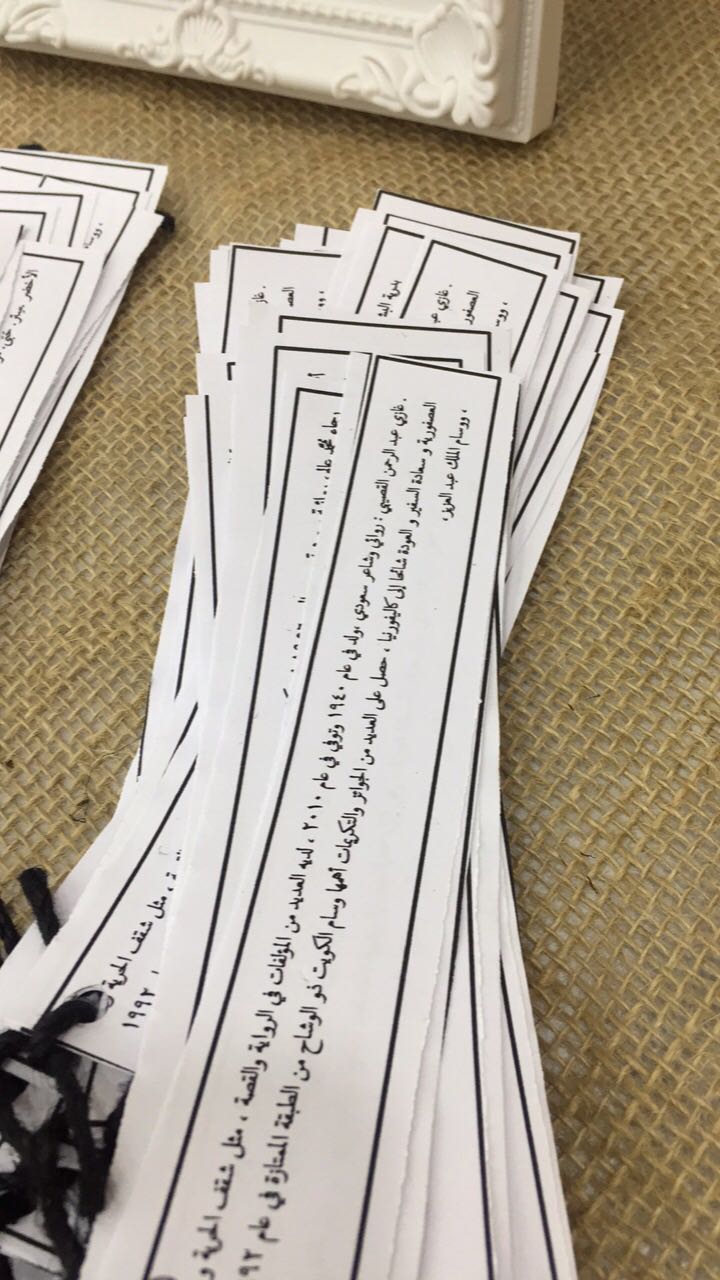 . غازي عبد الرحمن القصيبي : روائي وشاعر سعودي ،ولد في عام ١٩٤٠ وتوفي في عام ٢٠١٠ ، لديه العديد من المؤلفات في الرواية والقصة ، مثل شقف الحرية و
العصفورية و سعادة السفير و العودة شائحا إلى كاليفورنيا ، حصل على العديد من الجوائز والتكريمات أهمها وسام الكويت ذو الوشاح من الطبقة الممتازة في عام ٩٢
، ووسام الملك عبد العزيز.
، مثل شقف الحرية
١٩٩٢
. غازي عب
العصفور
الأخضر